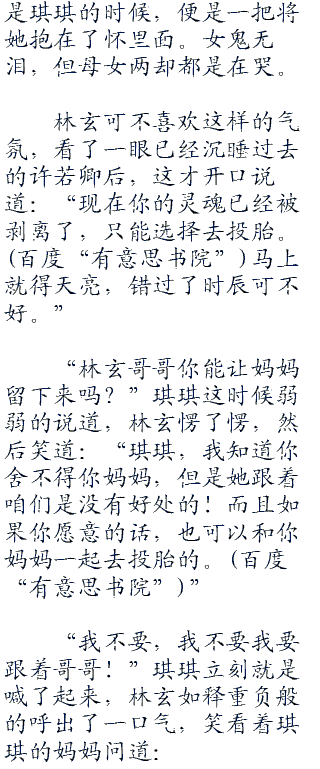 是琪琪的时候，便是一把将
她抱在了怀里面。女鬼无
泪，但母女两却都是在哭。
林玄可不喜欢这样的气
氛，看了一眼已经沉睡过去
的许若卿后，这才开口说
道：“现在你的灵魂已经被
剥离了，只能选择去投胎。
(百度“有意思书院”)马上
就得天亮，错过了时辰可不
好。”
“林玄哥哥你能让妈妈
留下来吗？”琪琪这时候弱
弱的说道，林玄愣了愣，然
后笑道：“琪琪，我知道你
舍不得你妈妈，但是她跟着
咱们是没有好处的！而且如
果你愿意的话，也可以和你
妈妈一起去投胎的。(百度
“有意思书院”)”
“我不要，我不要我要
跟着哥哥！”琪琪立刻就是
喊了起来，林玄如释重负般
的呼出了一口气，笑看着琪
琪的妈妈问道：